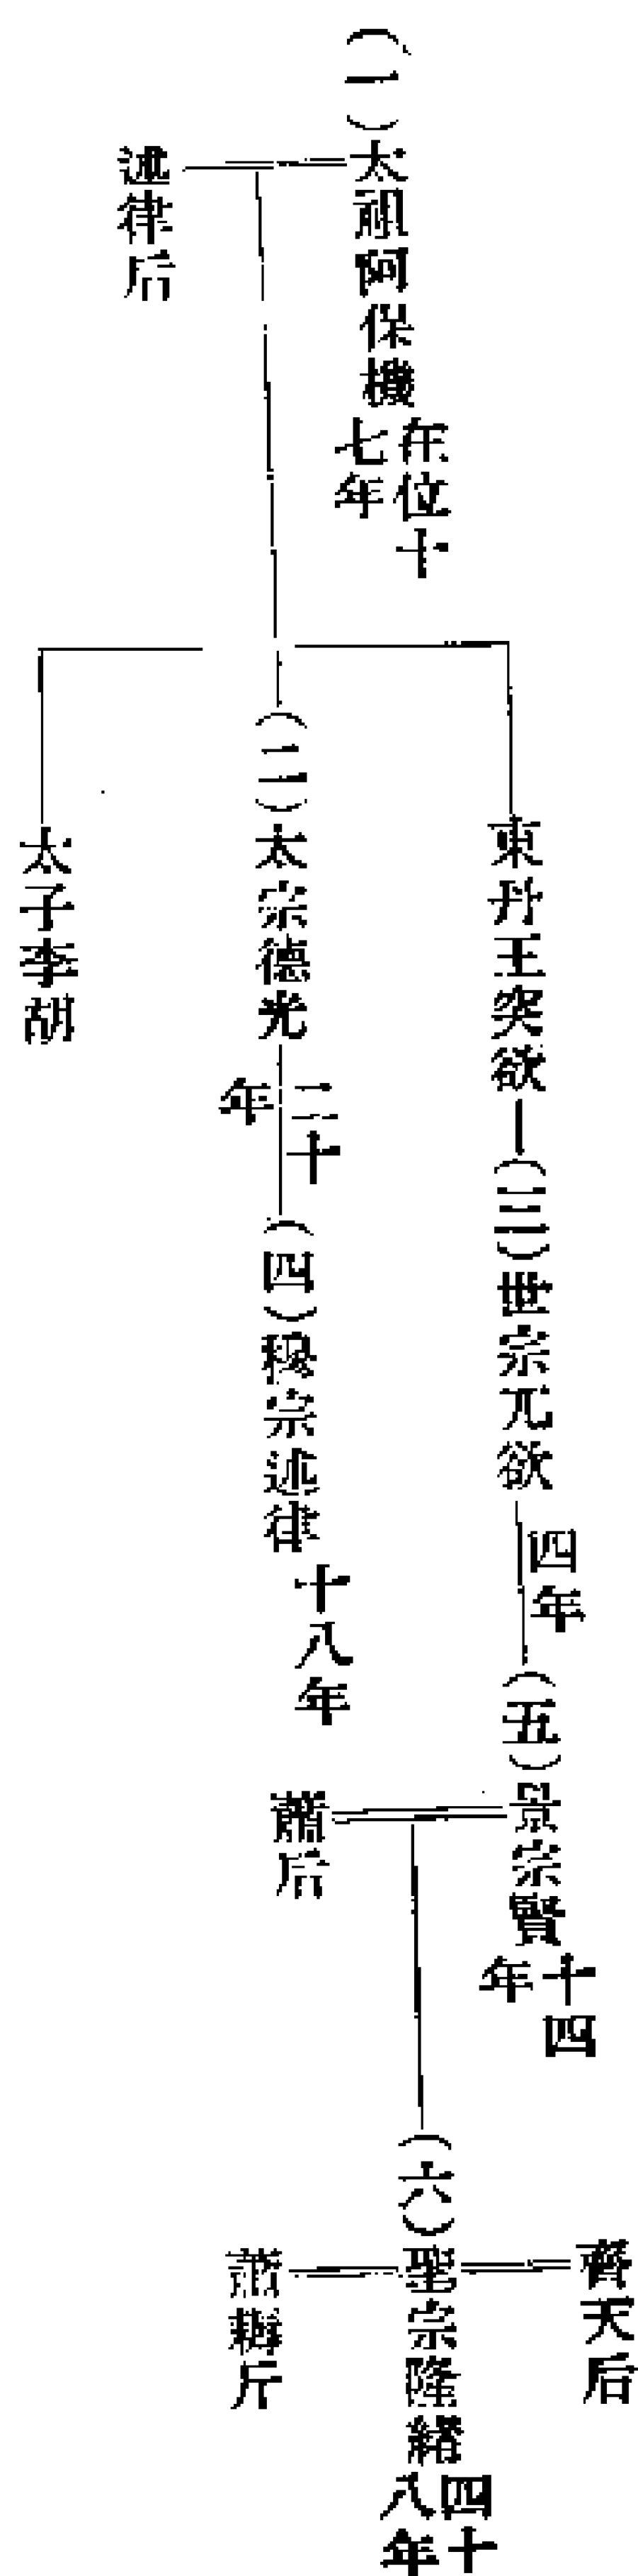 (一)太祖阿保機
在位十
七年
述律后
東丹王突欲
(三)世宗兀欲
四年
(五)景宗賢
十四
年
蕭后
(二)太宗德光
二十
年
(四)穆宗述律
十八年
太子李胡
齊天后
(六)聖宗隆緒
四十
八年
蕭耨斤